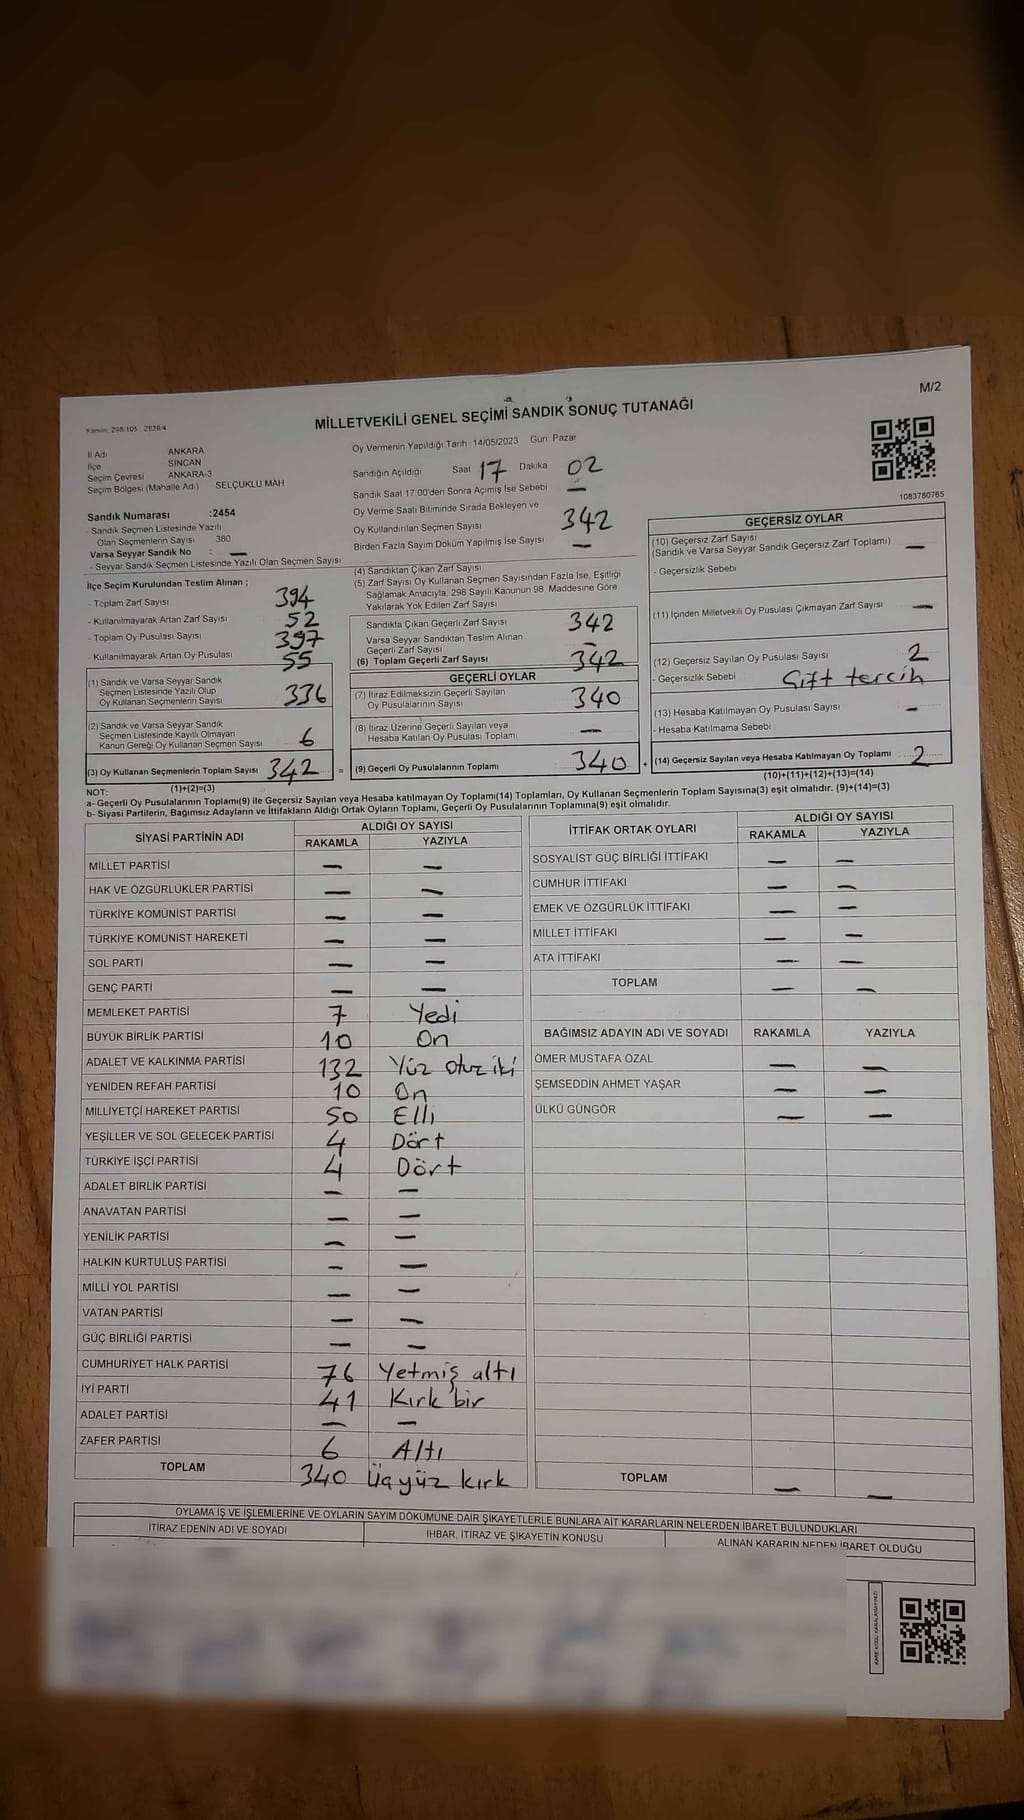 M/2
MİLLETVEKİLİ GENEL SEÇİMİ SANDIK SONUÇ TUTANAĞI
Kanun: 298/105 , 2839/4
İl Adı ANKARA
İlçe SİNCAN
Seçim Çevresi ANKARA-3
Seçim Bölgesi (Mahalle Adı) SELÇUKLU MAH
Sandık Numarası :2454
- Sandık Seçmen Listesinde Yazılı
Olan Seçmenlerin Sayısı 380
Varsa Seyyar Sandık No : —
- Seyyar Sandık Seçmen Listesinde Yazılı Olan Seçmen Sayısı:
Oy Vermenin Yapıldığı Tarih 14/05/2023 Gün Pazar
Sandığın Açıldığı Saat 17 Dakika 02
Sandık Saat 17:00'den Sonra Açımış İse Sebebi —
Oy Verme Saati Bitiminde Sırada Bekleyen ve
Oy Kullandırılan Seçmen Sayısı 342
Birden Fazla Sayım Döküm Yapılmış İse Sayısı —
1083780765
İlçe Seçim Kurulundan Teslim Alınan ;
- Toplam Zarf Sayısı 394
- Kullanılmayarak Artan Zarf Sayısı 52
- Toplam Oy Pusulası Sayısı 397
- Kullanılmayarak Artan Oy Pusulası 55
(1) Sandık ve Varsa Seyyar Sandık
Seçmen Listesinde Yazılı Olup
Oy Kullanan Seçmenlerin Sayısı 336
(2) Sandık ve Varsa Seyyar Sandık
Seçmen Listesinde Kayıtlı Olmayan
Kanun Gereği Oy Kullanan Seçmen Sayısı 6
(3) Oy Kullanan Seçmenlerin Toplam Sayısı 342 =
(1)+(2)=(3)
(4) Sandıktan Çıkan Zarf Sayısı
(5) Zarf Sayısı Oy Kullanan Seçmen Sayısından Fazla İse, Eşitliği
Sağlamak Amacıyla, 298 Sayılı Kanunun 98. Maddesine Göre
Yakılarak Yok Edilen Zarf Sayısı
Sandıkta Çıkan Geçerli Zarf Sayısı 342
Varsa Seyyar Sandıktan Teslim Alınan
Geçerli Zarf Sayısı —
(6) Toplam Geçerli Zarf Sayısı 342
GEÇERLİ OYLAR
(7) İtiraz Edilmeksizin Geçerli Sayılan
Oy Pusulalarının Sayısı 340
(8) İtiraz Üzerine Geçerli Sayılan veya
Hesaba Katılan Oy Pusulası Toplamı —
(9) Geçerli Oy Pusulalarının Toplamı 340 +
GEÇERSİZ OYLAR
(10) Geçersiz Zarf Sayısı
(Sandık ve Varsa Seyyar Sandık Geçersiz Zarf Toplamı) —
- Geçersizlik Sebebi
(11) İçinden Milletvekili Oy Pusulası Çıkmayan Zarf Sayısı —
(12) Geçersiz Sayılan Oy Pusulası Sayısı 2
- Geçersizlik Sebebi Çift tercih
(13) Hesaba Katılmayan Oy Pusulası Sayısı —
- Hesaba Katılmama Sebebi
(14) Geçersiz Sayılan veya Hesaba Katılmayan Oy Toplamı 2
(10)+(11)+(12)+(13)=(14)
NOT:
a- Geçerli Oy Pusulalarının Toplamı(9) ile Geçersiz Sayılan veya Hesaba katılmayan Oy Toplamı(14) Toplamları, Oy Kullanan Seçmenlerin Toplam Sayısına(3) eşit olmalıdır. (9)+(14)=(3)
b- Siyasi Partilerin, Bağımsız Adayların ve İttifakların Aldığı Ortak Oyların Toplamı, Geçerli Oy Pusulalarının Toplamına(9) eşit olmalıdır.
SİYASİ PARTİNİN ADI ALDIĞI OY SAYISI
RAKAMLA YAZIYLA
MİLLET PARTİSİ — —
HAK VE ÖZGÜRLÜKLER PARTİSİ — —
TÜRKİYE KOMÜNİST PARTİSİ — —
TÜRKİYE KOMÜNİST HAREKETİ — —
SOL PARTİ — —
GENÇ PARTİ — —
MEMLEKET PARTİSİ 7 Yedi
BÜYÜK BİRLİK PARTİSİ 10 On
ADALET VE KALKINMA PARTİSİ 132 Yüz otuz iki
YENİDEN REFAH PARTİSİ 10 On
MİLLİYETÇİ HAREKET PARTİSİ 50 Elli
YEŞİLLER VE SOL GELECEK PARTİSİ 4 Dört
TÜRKİYE İŞÇİ PARTİSİ 4 Dört
ADALET BİRLİK PARTİSİ — —
ANAVATAN PARTİSİ — —
YENİLİK PARTİSİ — —
HALKIN KURTULUŞ PARTİSİ — —
MİLLİ YOL PARTİSİ — —
VATAN PARTİSİ — —
GÜÇ BİRLİĞİ PARTİSİ — —
CUMHURİYET HALK PARTİSİ 76 Yetmiş altı
İYİ PARTİ 41 Kırk bir
ADALET PARTİSİ — —
ZAFER PARTİSİ 6 Altı
TOPLAM 340 Üçyüz kırk
İTTİFAK ORTAK OYLARI ALDIĞI OY SAYISI
RAKAMLA YAZIYLA
SOSYALİST GÜÇ BİRLİĞİ İTTİFAKI — —
CUMHUR İTTİFAKI — —
EMEK VE ÖZGÜRLÜK İTTİFAKI — —
MİLLET İTTİFAKI — —
ATA İTTİFAKI — —
TOPLAM — —
BAĞIMSIZ ADAYIN ADI VE SOYADI RAKAMLA YAZIYLA
ÖMER MUSTAFA ÖZAL — —
ŞEMSEDDİN AHMET YAŞAR — —
ÜLKÜ GÜNGÖR — —
TOPLAM — —
OYLAMA İŞ VE İŞLEMLERİNE VE OYLARIN SAYIM DÖKÜMÜNE DAİR ŞİKAYETLERLE BUNLARA AİT KARARLARIN NELERDEN İBARET BULUNDUKLARI
İTİRAZ EDENİN ADI VE SOYADI İHBAR, İTİRAZ VE ŞİKAYETİN KONUSU ALINAN KARARIN NEDEN İBARET OLDUĞU
KARE KODU KARALAMAYINIZ!